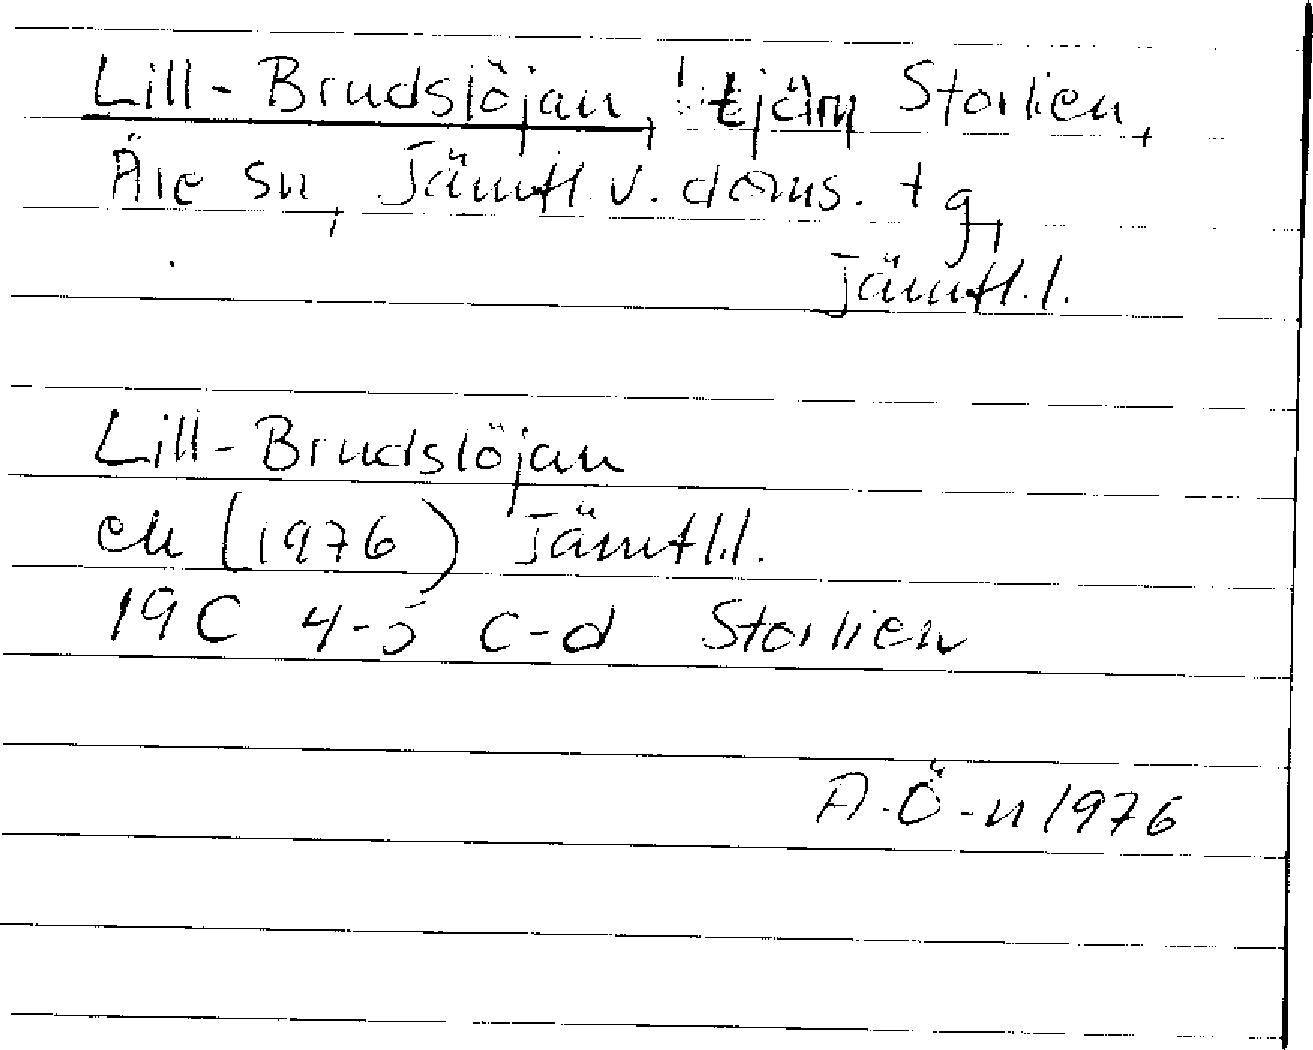 Lill-Brudslöjan, tjärn Storlien,
Åre sn, Jämtl. v. doms. tg,
Jämtl.l.
Lill-Brudslöjan
ek (1976) Jämtl.l.
19C 4-5 c-d Storlien
A.Ö-n 1976